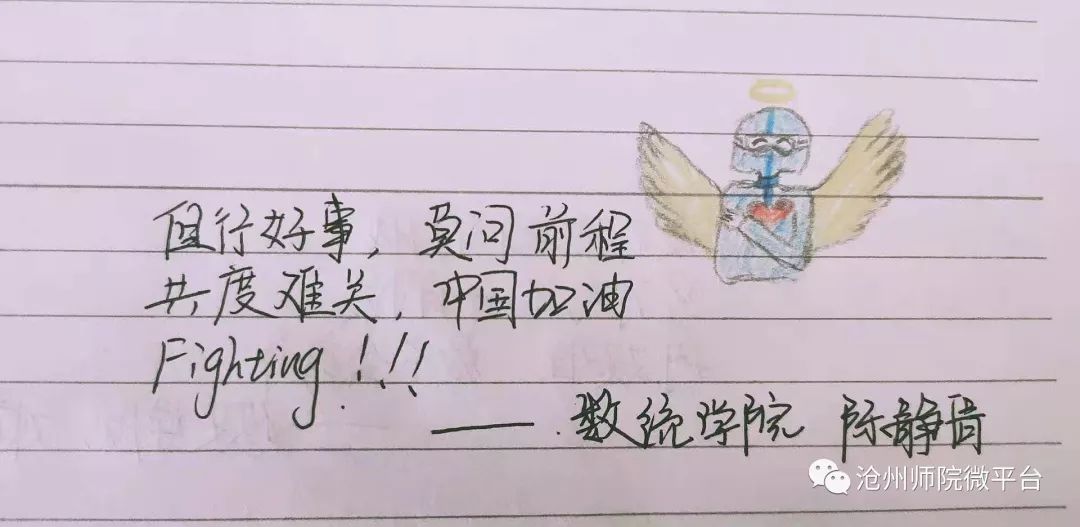 但行好事，莫问前程
共度难关，中国加油
Fighting!!!
——数统学院 陈静
沧州师院微平台